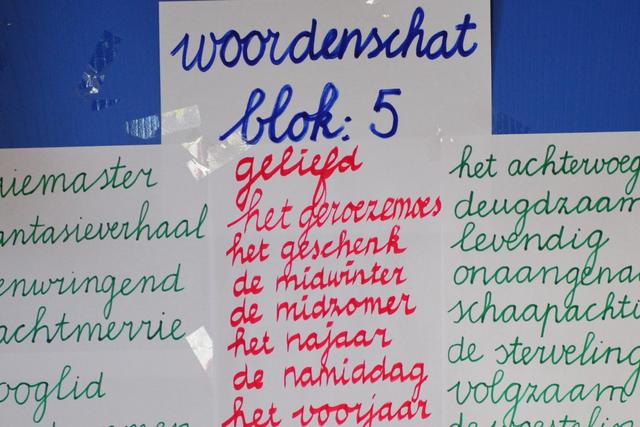 woordenschat
blok: 5
riemaster
antasieverhaal
enwringend
achtmerrie
ooglid
geliefd
het geroezemoes
het geschenk
de midwinter
de midzomer
het najaar
de namiddag
het voorjaar
het achtervoeg
deugdzaam
levendig
onaangena
schaapachti
de sterveling
volgzaam